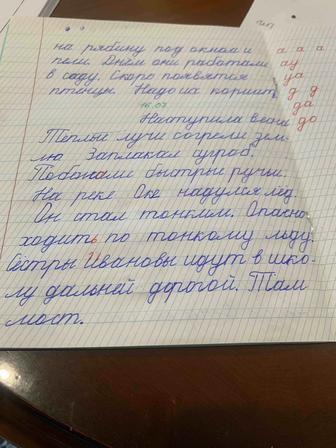 на рябину под окном и
пели. Днём они работали
в саду. Скоро появятся
птенцы. Надо их кормит
16.07
Наступила весна
Теплые лучи согрели зем-
лю Заплакал сугроб.
Побежали быстрые ручьи.
На реке Оке надулся лёд.
Он стал тонким. Опасно
ходить по тонкому льду.
Сёстры Ивановы идут в шко-
лу дальней дорогой. Там
мост.
а а а
ау
уа
д д
да
до